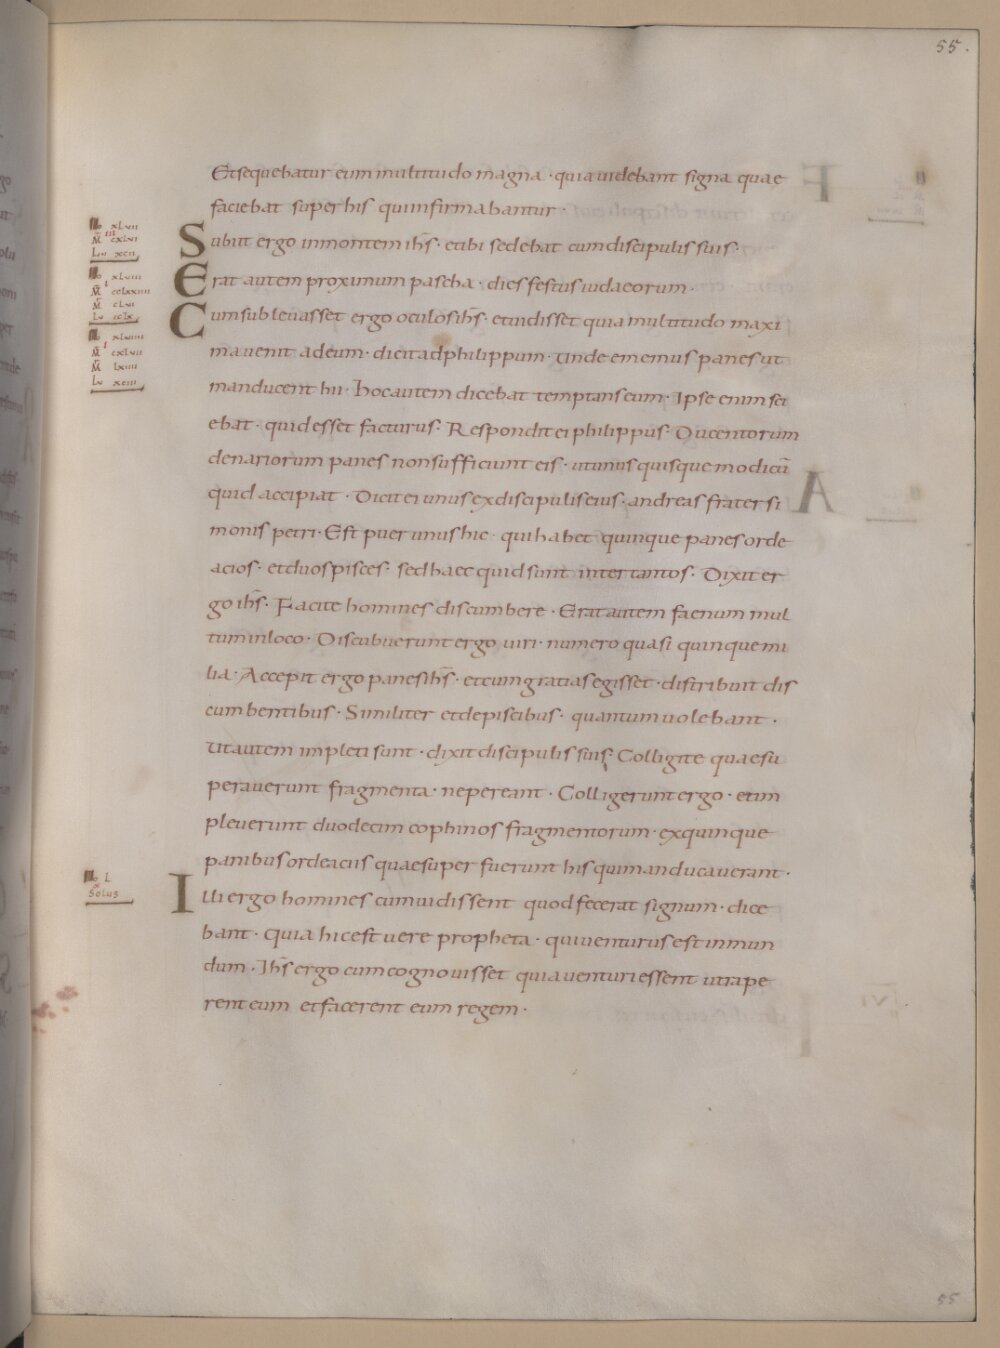 55.
Et sequebatur eum multitudo magna · quia uidebant signa quae
faciebat super his qui infirmabantur ·
Io xlvii
M cxlvi
Lu xcii
Subiit ergo in montem ihs̄ · et ibi sedebat cum discipulis suis ·
Io xlviii
M cclxxiiii
M clvi
Lu cclx
Erat autem proximum pascha · dies festus iudaeorum ·
Io xlviiii
M cxlvii
M lxiiii
Lu xciii
Cum subleuasset ergo oculos ihs̄ · et uidisset quia multitudo maxi
ma uenit ad eum · dicit ad philippum · Unde ememus panes ut
manducent hii · Hoc autem dicebat temptans eum · Ipse enim sci
ebat · quid esset facturus · Respondit ei philippus · Ducentorum
denariorum panes non sufficiunt eis · ut unus quisque modicū
quid accipiat · Dicit ei unus ex discipulis eius · andreas frater si
monis petri · Est puer unus hic · qui habet quinque panes orde
acios · et duos pisces · sed haec quid sunt inter tantos · Dixit er
go ihs̄ · Facite homines discumbere · Erat autem faenum mul
tum in loco · Discubuerunt ergo uiri · numero quasi quinque mi
lia · Accepit ergo panes ihs̄ · et cum gratias egisset · distribuit dis
cumbentibus · Similiter et de piscibus · quantum uolebant ·
Ut autem impleti sunt · dixit discipulis suis · Colligite quae su
perauerunt fragmenta · ne pereant · Colligerunt ergo · et im
pleuerunt duodecim cophinos fragmentorum · ex quinque
panibus ordeaciis quae superfuerunt his qui manducauerant ·
Io L
Solus
Illi ergo homines cum uidissent quod fecerat signum · dice
bant · Quia hic est uere propheta · qui uenturus est in mun
dum · Ihs̄ ergo cum cognouisset quia uenturi essent ut rape
rent eum et facerent eum regem ·
55